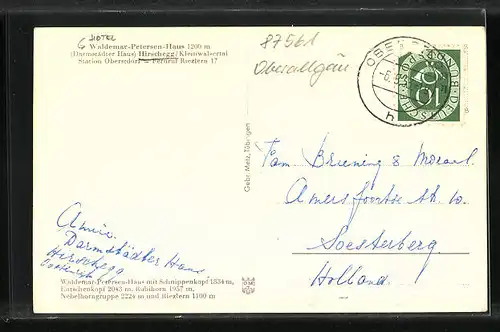 HOTEL
Waldemar-Petersen-Haus 1200 m
(Darmstädter Haus) Hirschegg/Kleinwalsertal
Station Oberstdorf – Fernruf Riezlern 17
87561
Oberallgäu
DEUTSCHE BUNDESPOST
10
Gebr. Metz, Tübingen
Fam. Bruening &
Amersfoortse str. 10.
Soesterberg.
Holland.
Darmstädter Haus
Hirschegg
Oostenrijk
Waldemar-Petersen-Haus mit Schnippenkopf 1834 m,
Entschenkopf 2043 m, Rubihorn 1957 m,
Nebelhorngruppe 2224 m und Riezlern 1100 m